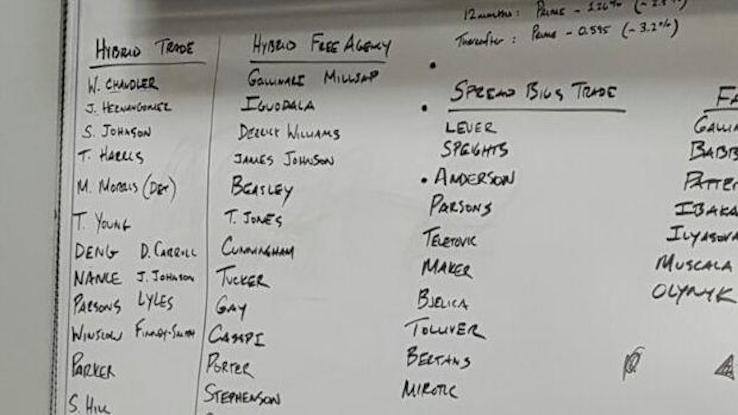 12 months: Prime -
Thereafter: Prime - 0.595 (-3.2%)
HYBRID TRADE
W. CHANDLER
J. HERNANGOMEZ
S. JOHNSON
T. HARRIS
M. MORRIS (DET)
T. YOUNG
DENG D. CARROLL
NANCE J. JOHNSON
PARSONS LYLES
WINSLOW FINNEY-SMITH
PARKER
S. HILL
HYBRID FREE AGENCY
GALLINARI MILLSAP
IGUODALA
DERRICK WILLIAMS
JAMES JOHNSON
BEASLEY
T. JONES
CUNNINGHAM
TUCKER
GAY
CASSPI
PORTER
STEPHENSON
SPREAD BIGS TRADE
LEUER
SPEIGHTS
• ANDERSON
PARSONS
TELETOVIC
MAKER
BJELICA
TOLLIVER
BERTANS
MIROTIC
FA
GALLIN
BABB
PATTER
IBAKA
ILYASOVA
MUSCALA
OLYNYK